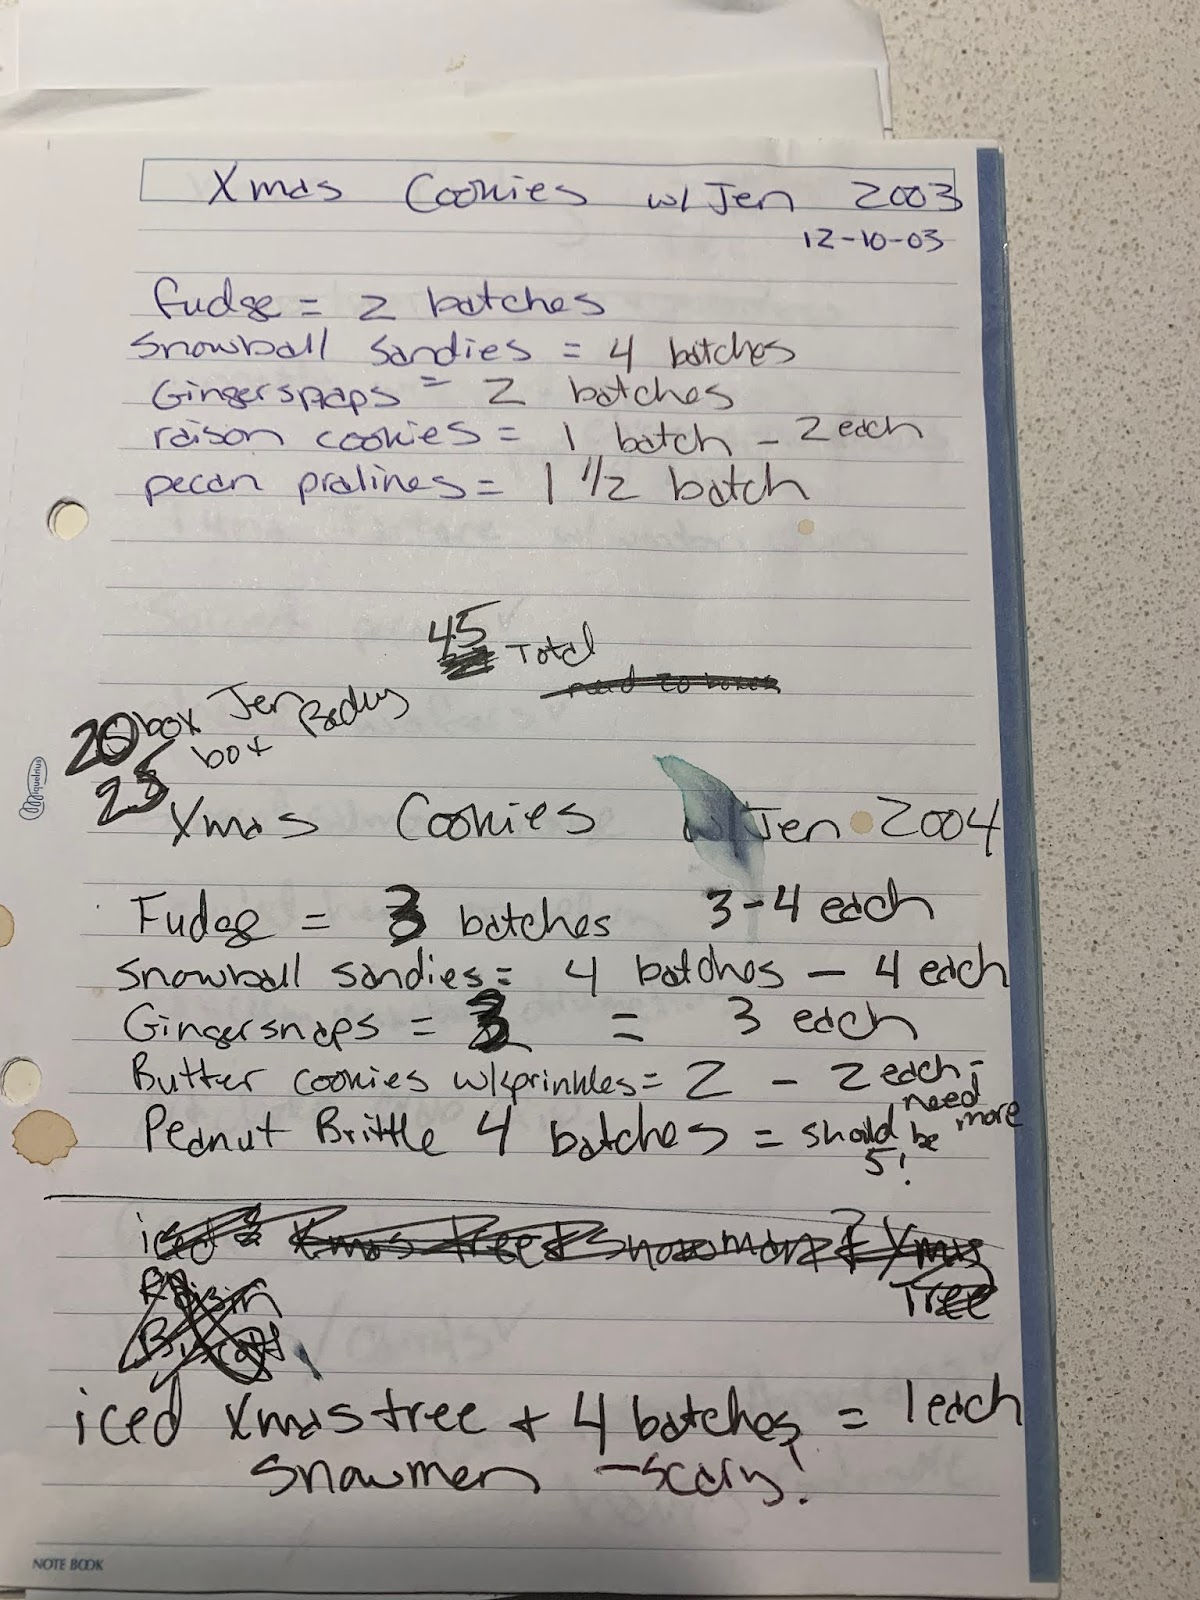 Xmas Cookies w/ Jen 2003
12-10-03
fudge = 2 batches
Snowball Sandies = 4 batches
Gingersnaps = 2 batches
raison cookies = 1 batch - 2 each
pecan pralines = 1 1/2 batch
45 Total
need 20 boxes
20 box Jen
25 box Becky
Xmas Cookies w/ Jen 2004
Fudge = 3 batches 3-4 each
Snowball sandies = 4 batches - 4 each
Gingersnaps = 3 = 3 each
Butter cookies w/sprinkles = 2 - 2 each - need more
Peanut Brittle 4 batches = should be 5!
iced Xmas tree & Snowman & Xmas Tree
Raisin
iced Xmas tree + 4 batches = 1 each
Snowmen - scary!
Miquelrius
NOTE BOOK